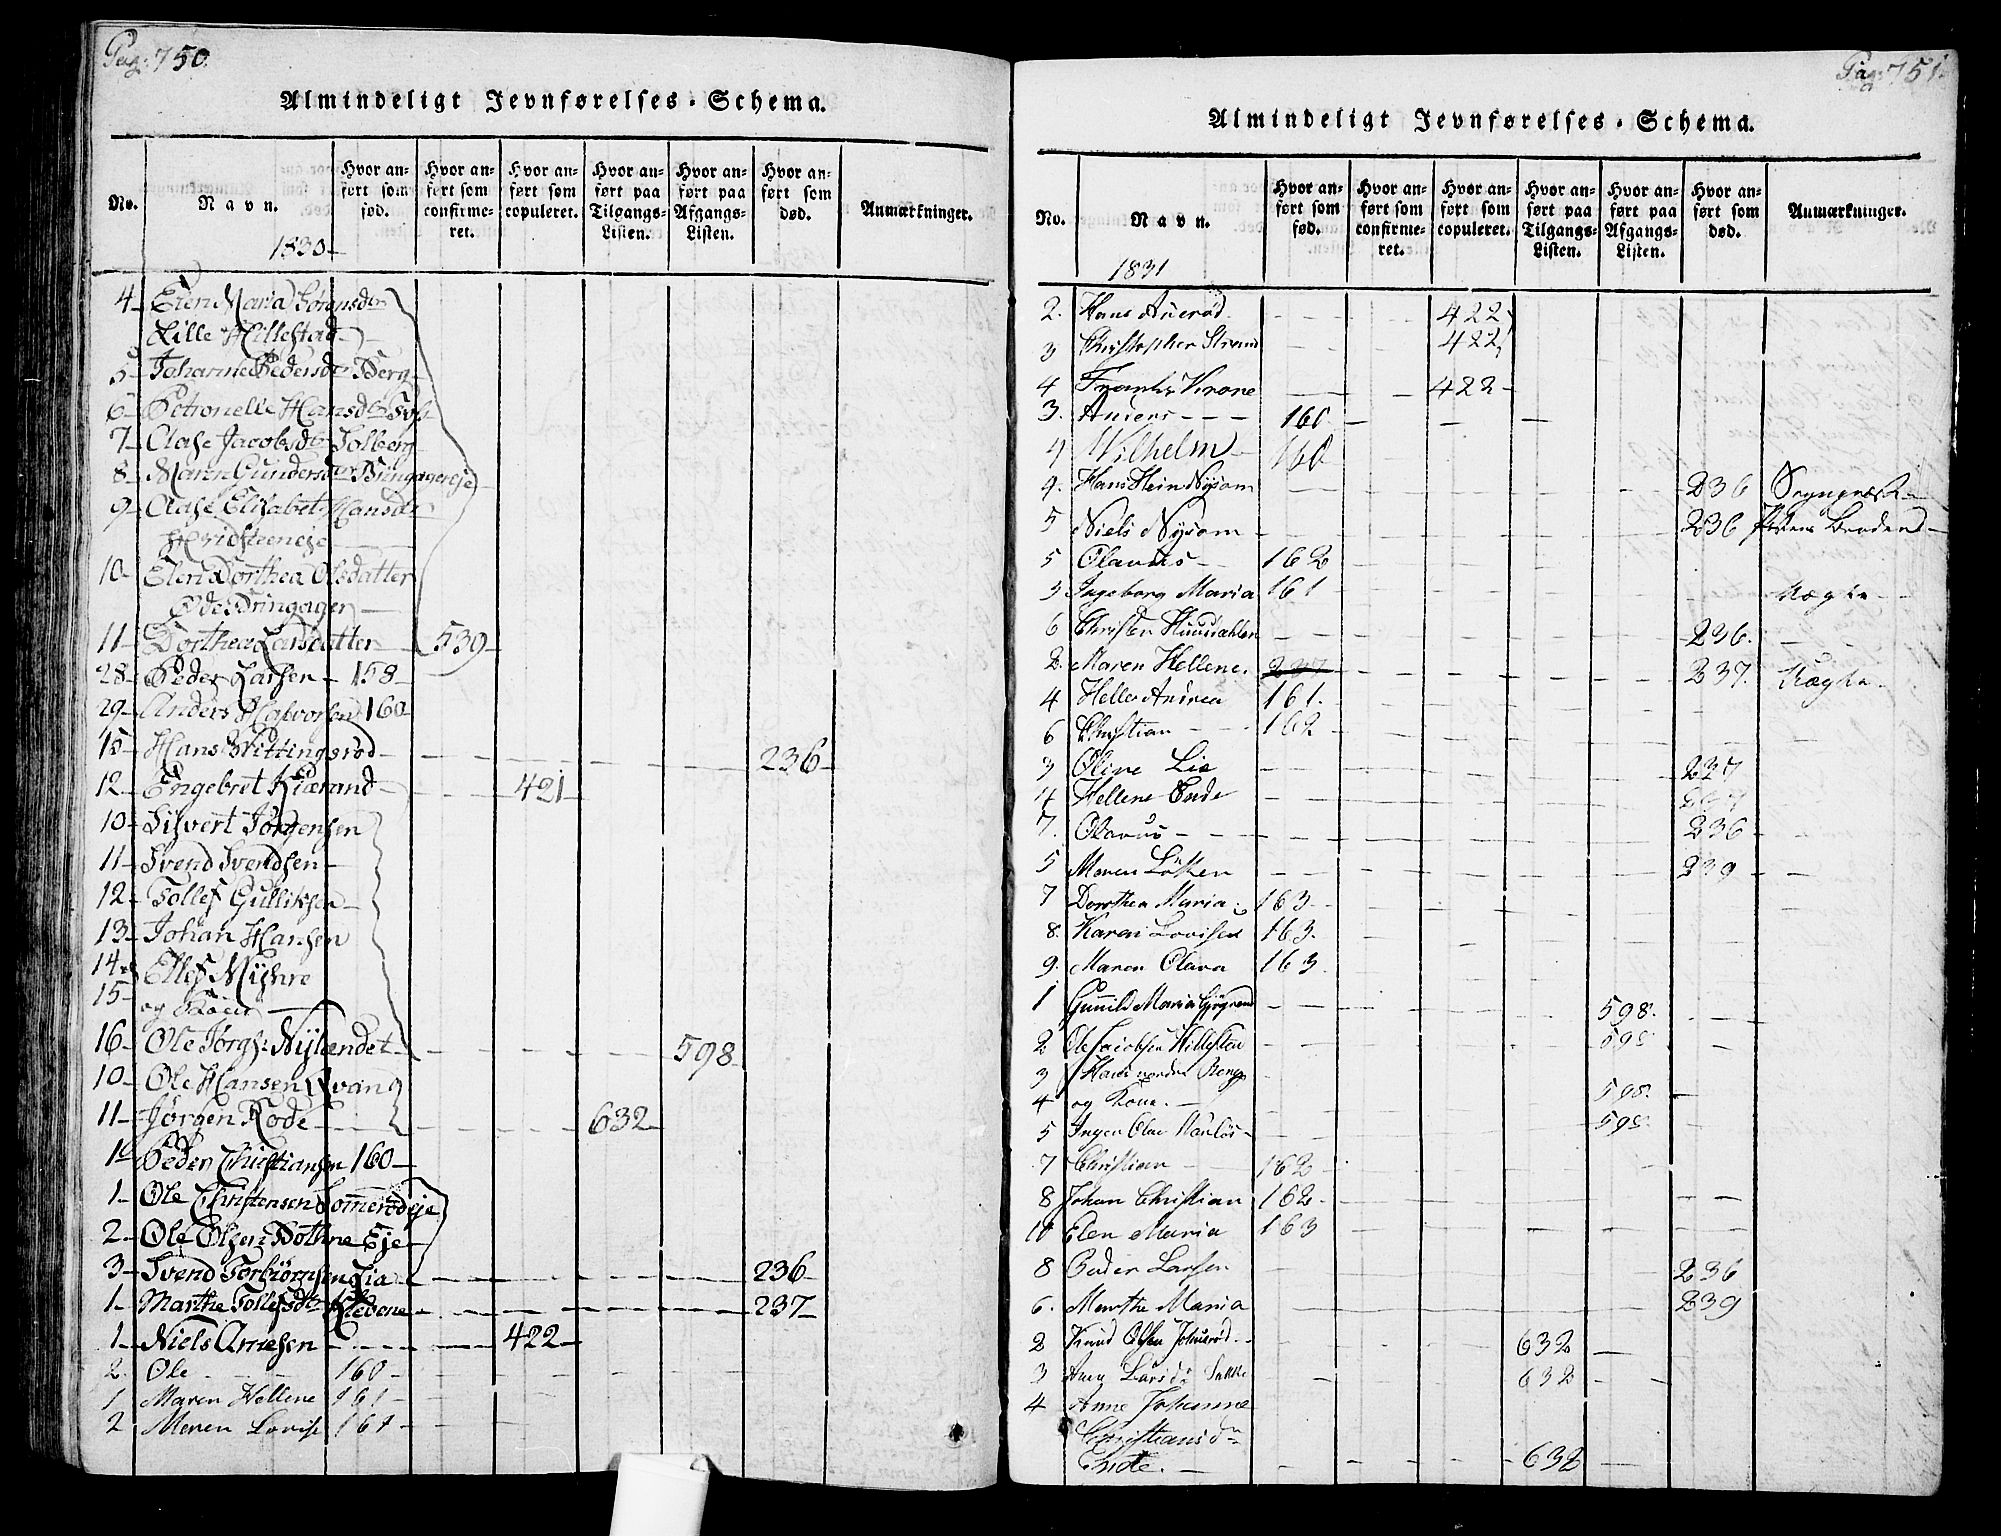 Pag: 750.
Almindeligt Jevnførelses-Schema.
No. Navn. Hvor anført som fød. Hvor anført som confirmeret. Hvor anført som copuleret. Hvor anført paa Tilgangs-Listen. Hvor anført paa Afgangs-Listen. Hvor anført som død. Anmærkninger.
1830
4 Elen Maria Sørensdtr
Lille Hillestad
5 Johanne Pedersdtr Berg
6 Petronelle Hansdtr
7 Aase Jacobsdtr Solberg
8 Maren Gundersdtr Bringagereje
9 Aase Elisabet Hansdtr
10 Elen Dorthea Olsdatter
Øde Bringager
11 Dorthea Larsdatter 539
28 Peder Larsen 158
29 Anders Halvorsen 160
15 Hans Wittingsrød 236
12 Engebret Kiærand 421
10 Sifvert Jørgensen
11 Svend Svendsen
12 Tollef Gulliksen
13 Johan Hansen
14 Ellef Myhre
15 og Kone
16 Ole Jørgs: Nylændet 598
10 Ole Hansen Qvang
11 Jørgen Rode 632
1 Peder Christiansen 160
1 Ole Christensen Sommerødeje
2 Ole Olsen Bothne Eje
3 Svend Torbiørnsen Lia 236
1 Marthe Tollefsdtr Klevene 237
1 Niels Arnesen 422
2. Ole 160
1 Maren Hellene 161
2 Maren Lovise 161
Pag: 751.
Almindeligt Jevnførelses-Schema.
No. Navn. Hvor anført som fød. Hvor anført som confirmeret. Hvor anført som copuleret. Hvor anført paa Tilgangs-Listen. Hvor anført paa Afgangs-Listen. Hvor anført som død. Anmærkninger.
1831
2. Hans Auerød 422
3 Christopher Strand 422
4 Frants Krone 422
3. Anders 160
4 Wilhelm 160
4. Hans Hein Nysom 236
5 Niels Nysom 236
5 Olavus 162
3 Ingeborg Maria 161
6 Christen 236.
2. Maren Hellene. 237 237.
4 Helle Andrea 161.
6 Christian 162
3 Oline Lie 237
4 Hellene Ende
7. Olavus 236
5 Maren Løken 239
7 Dorothea Maria 163
8. Karen Lovise 163.
9. Maren Olava 163
1 Gunild Maria 598.
2 Ole Jacobsen Hillestad 598
3 Hans
4 og Kone. 598.
5 Inger Olea 598
7 Christian 162
8 Johan Christian 162
10 Elen Maria 163
8 Peder Larsen 236
6. Marthe Maria 239
2 Knud Olsen 632
3 Anne Larsdr 632
4 Anne Johanne
Christiansdr
Ende. 632